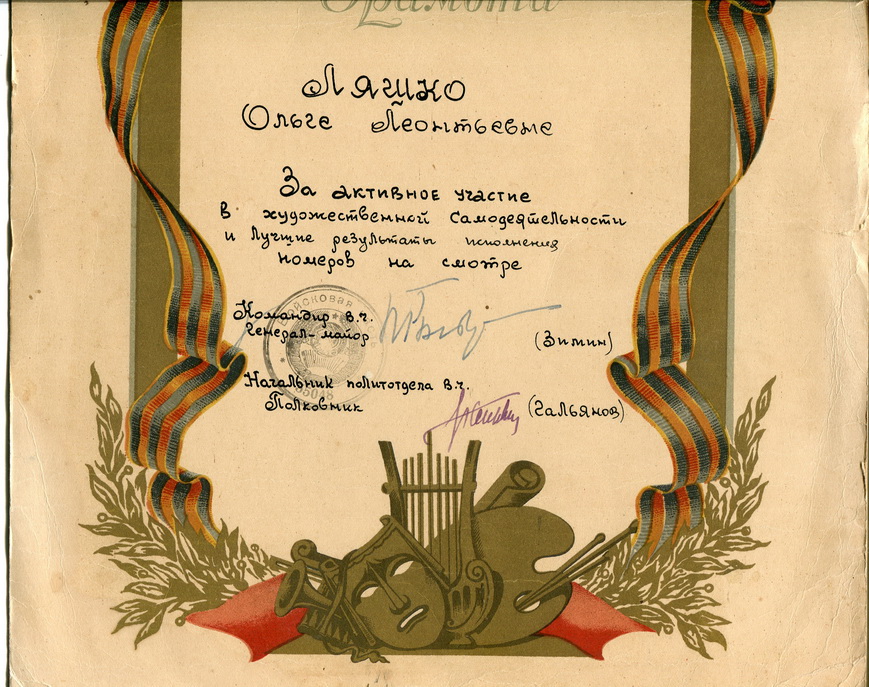 Грамота
Ляшко
Ольге Леонтьевне
За активное участие
в художественной самодеятельности
и лучшие результаты исполнения
номеров на смотре
Командир в.ч.
Генерал-майор
(Зимин)
Начальник политотдела в.ч.
Полковник
(Гальянов)
Войсковая